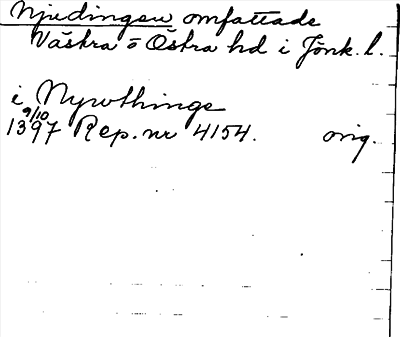 Njudingen omfattade
Västra o Östra hd i Jönk. l.
i Nywthinge
9/10
1397 Rep. nr 4154. orig.